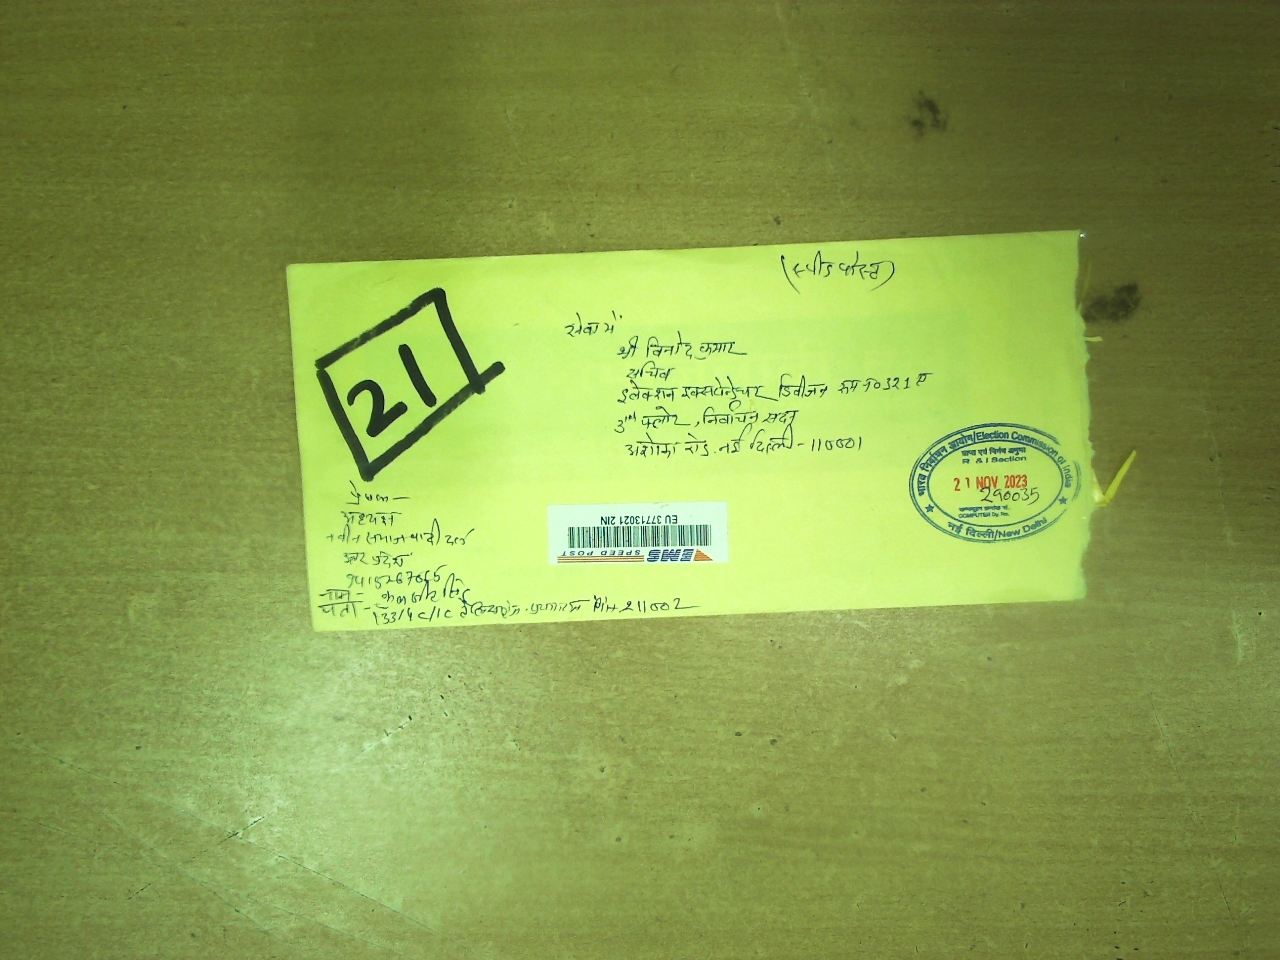 (स्पीड पोस्ट)
21
सेवा में
श्री विनोद कुमार
सचिव
इलेक्शन इक्सपेन्डेचर डिवीजन रूम नं0 321 ए
3rd फ्लोर, निर्वाचन सदन
अशोका रोड. नई दिल्ली - 110001
भारत निर्वाचन आयोग/Election Commission of India
R & I Section
21 NOV 2023
290035
COMPUTER Dy. No.
नई दिल्ली/New Delhi
EU 377130212IN
EMS SPEED POST
प्रेषक -
अध्यक्ष
नवीन समाजवादी दल
उत्तर प्रदेश
नाम -
पता - 133/4C/1C
Pin 211002